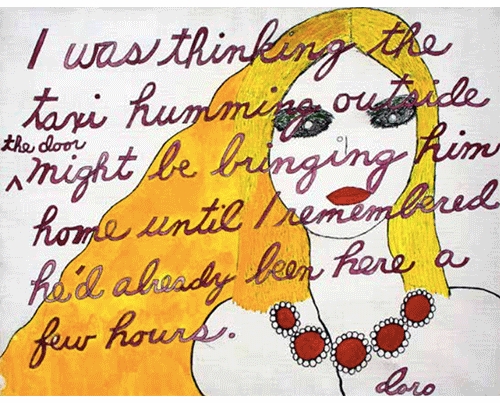 I was thinking the
taxi humming outside
the door
^might be bringing him
home until I remembered
he'd already been here a
few hours.
doro